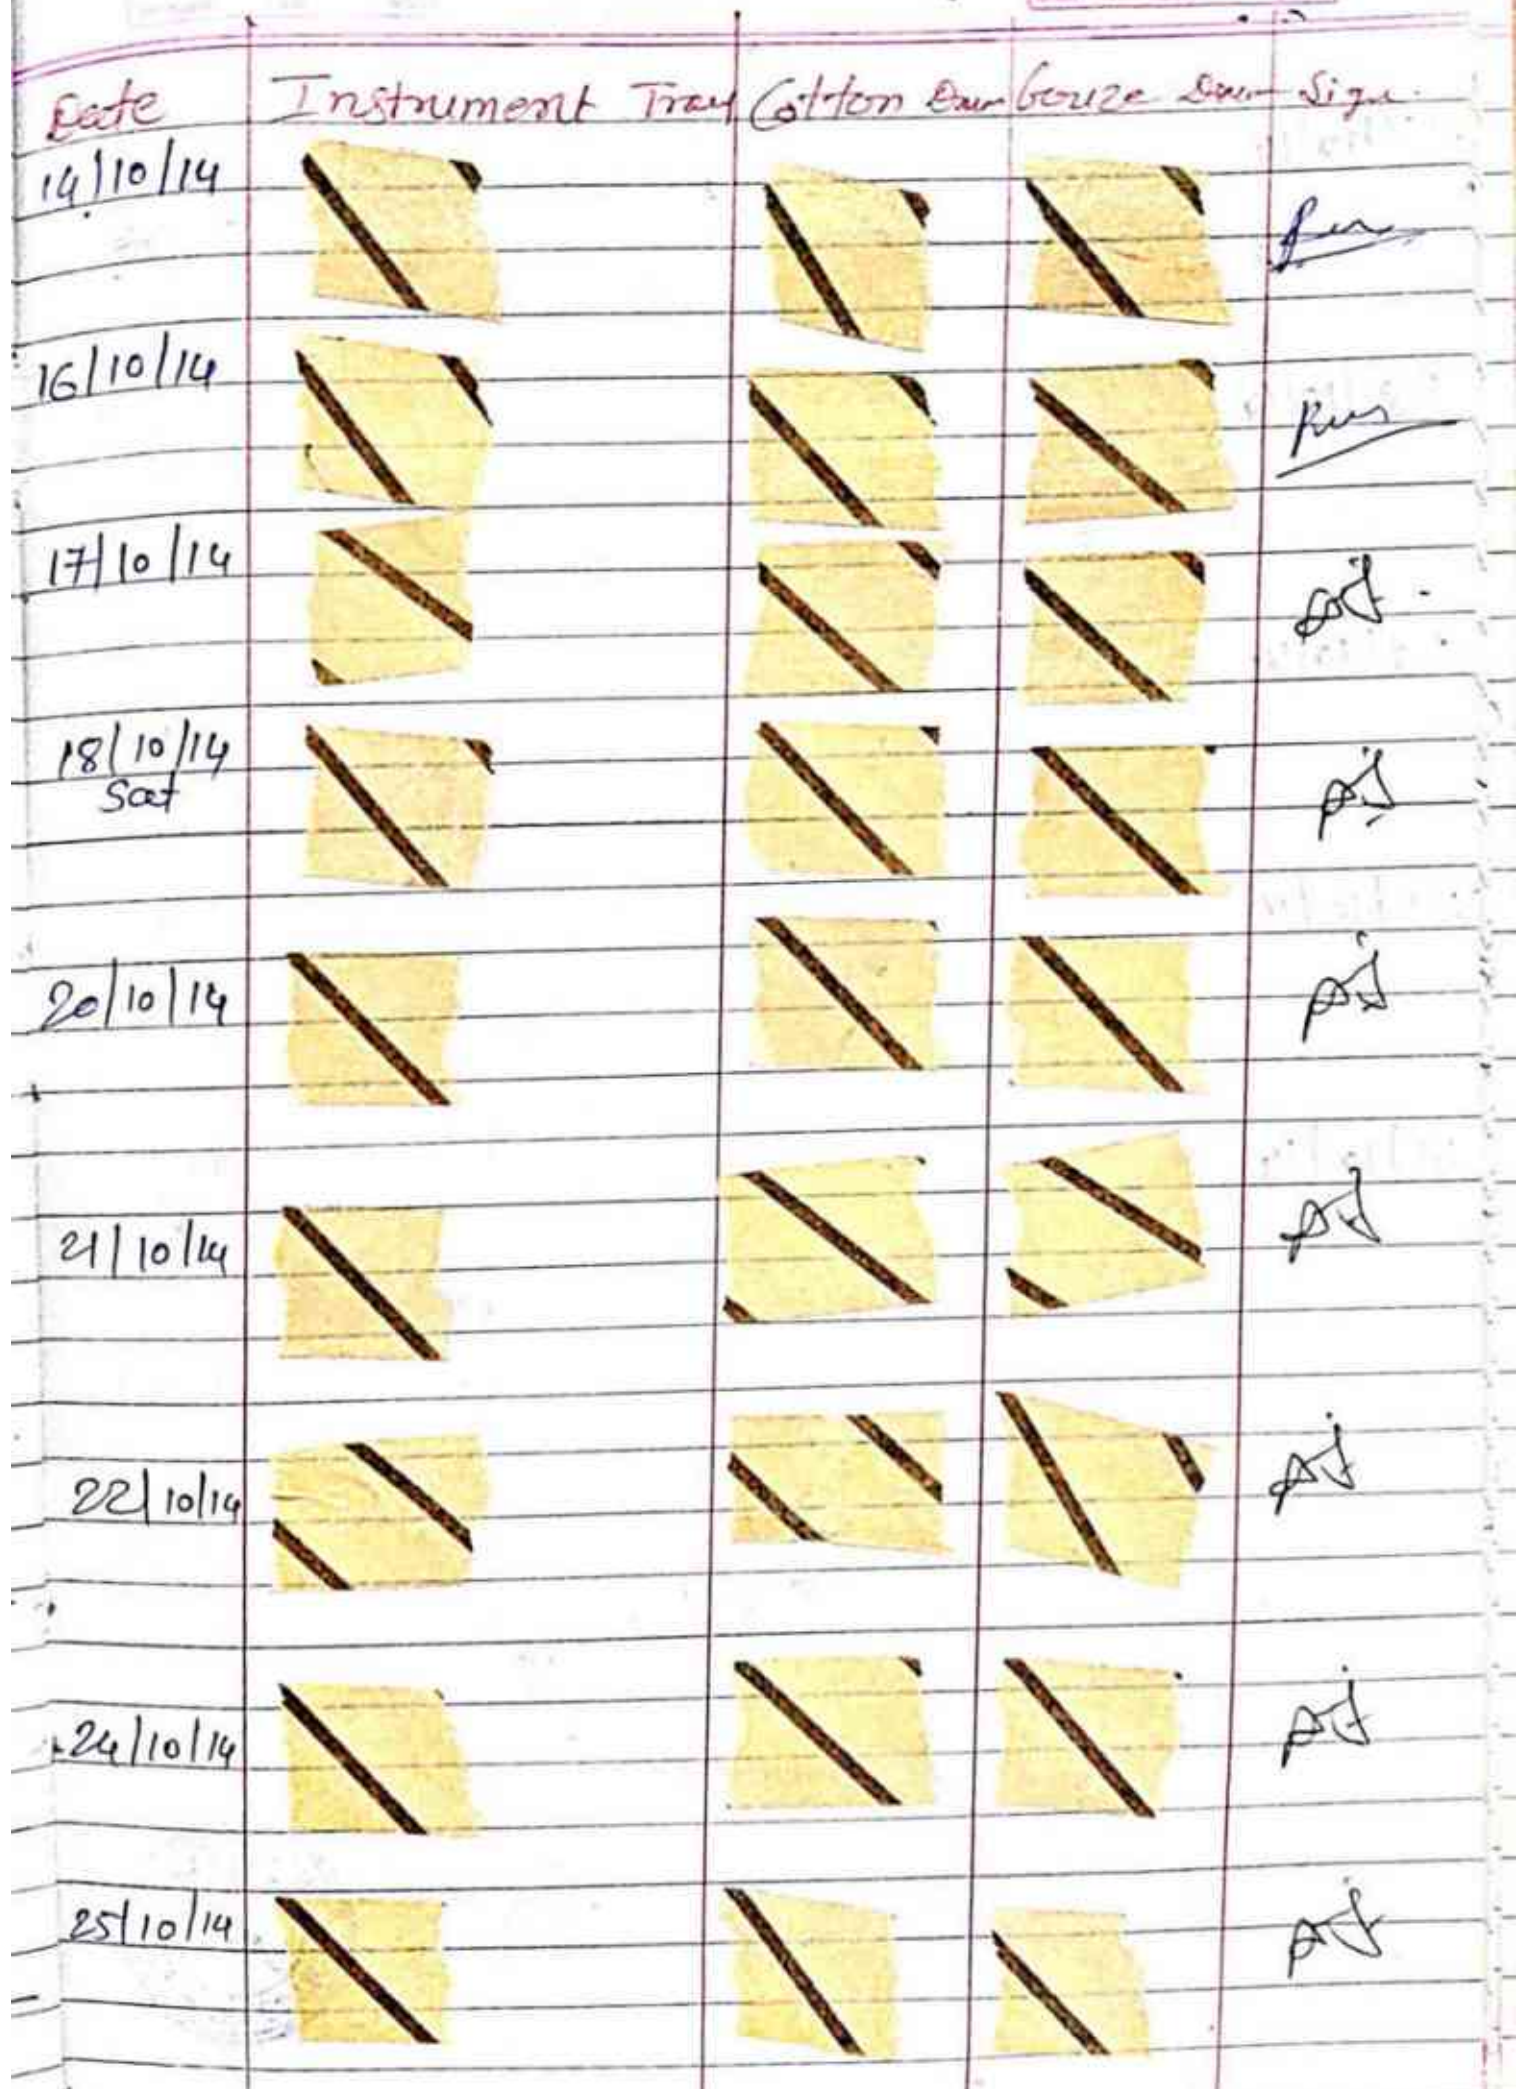 Date Instrument Tray Cotton Drum Gouze Drum Sign.
14/10/14
16/10/14
17/10/14
18/10/14
Sat
20/10/14
21/10/14
22/10/14
24/10/14
25/10/14